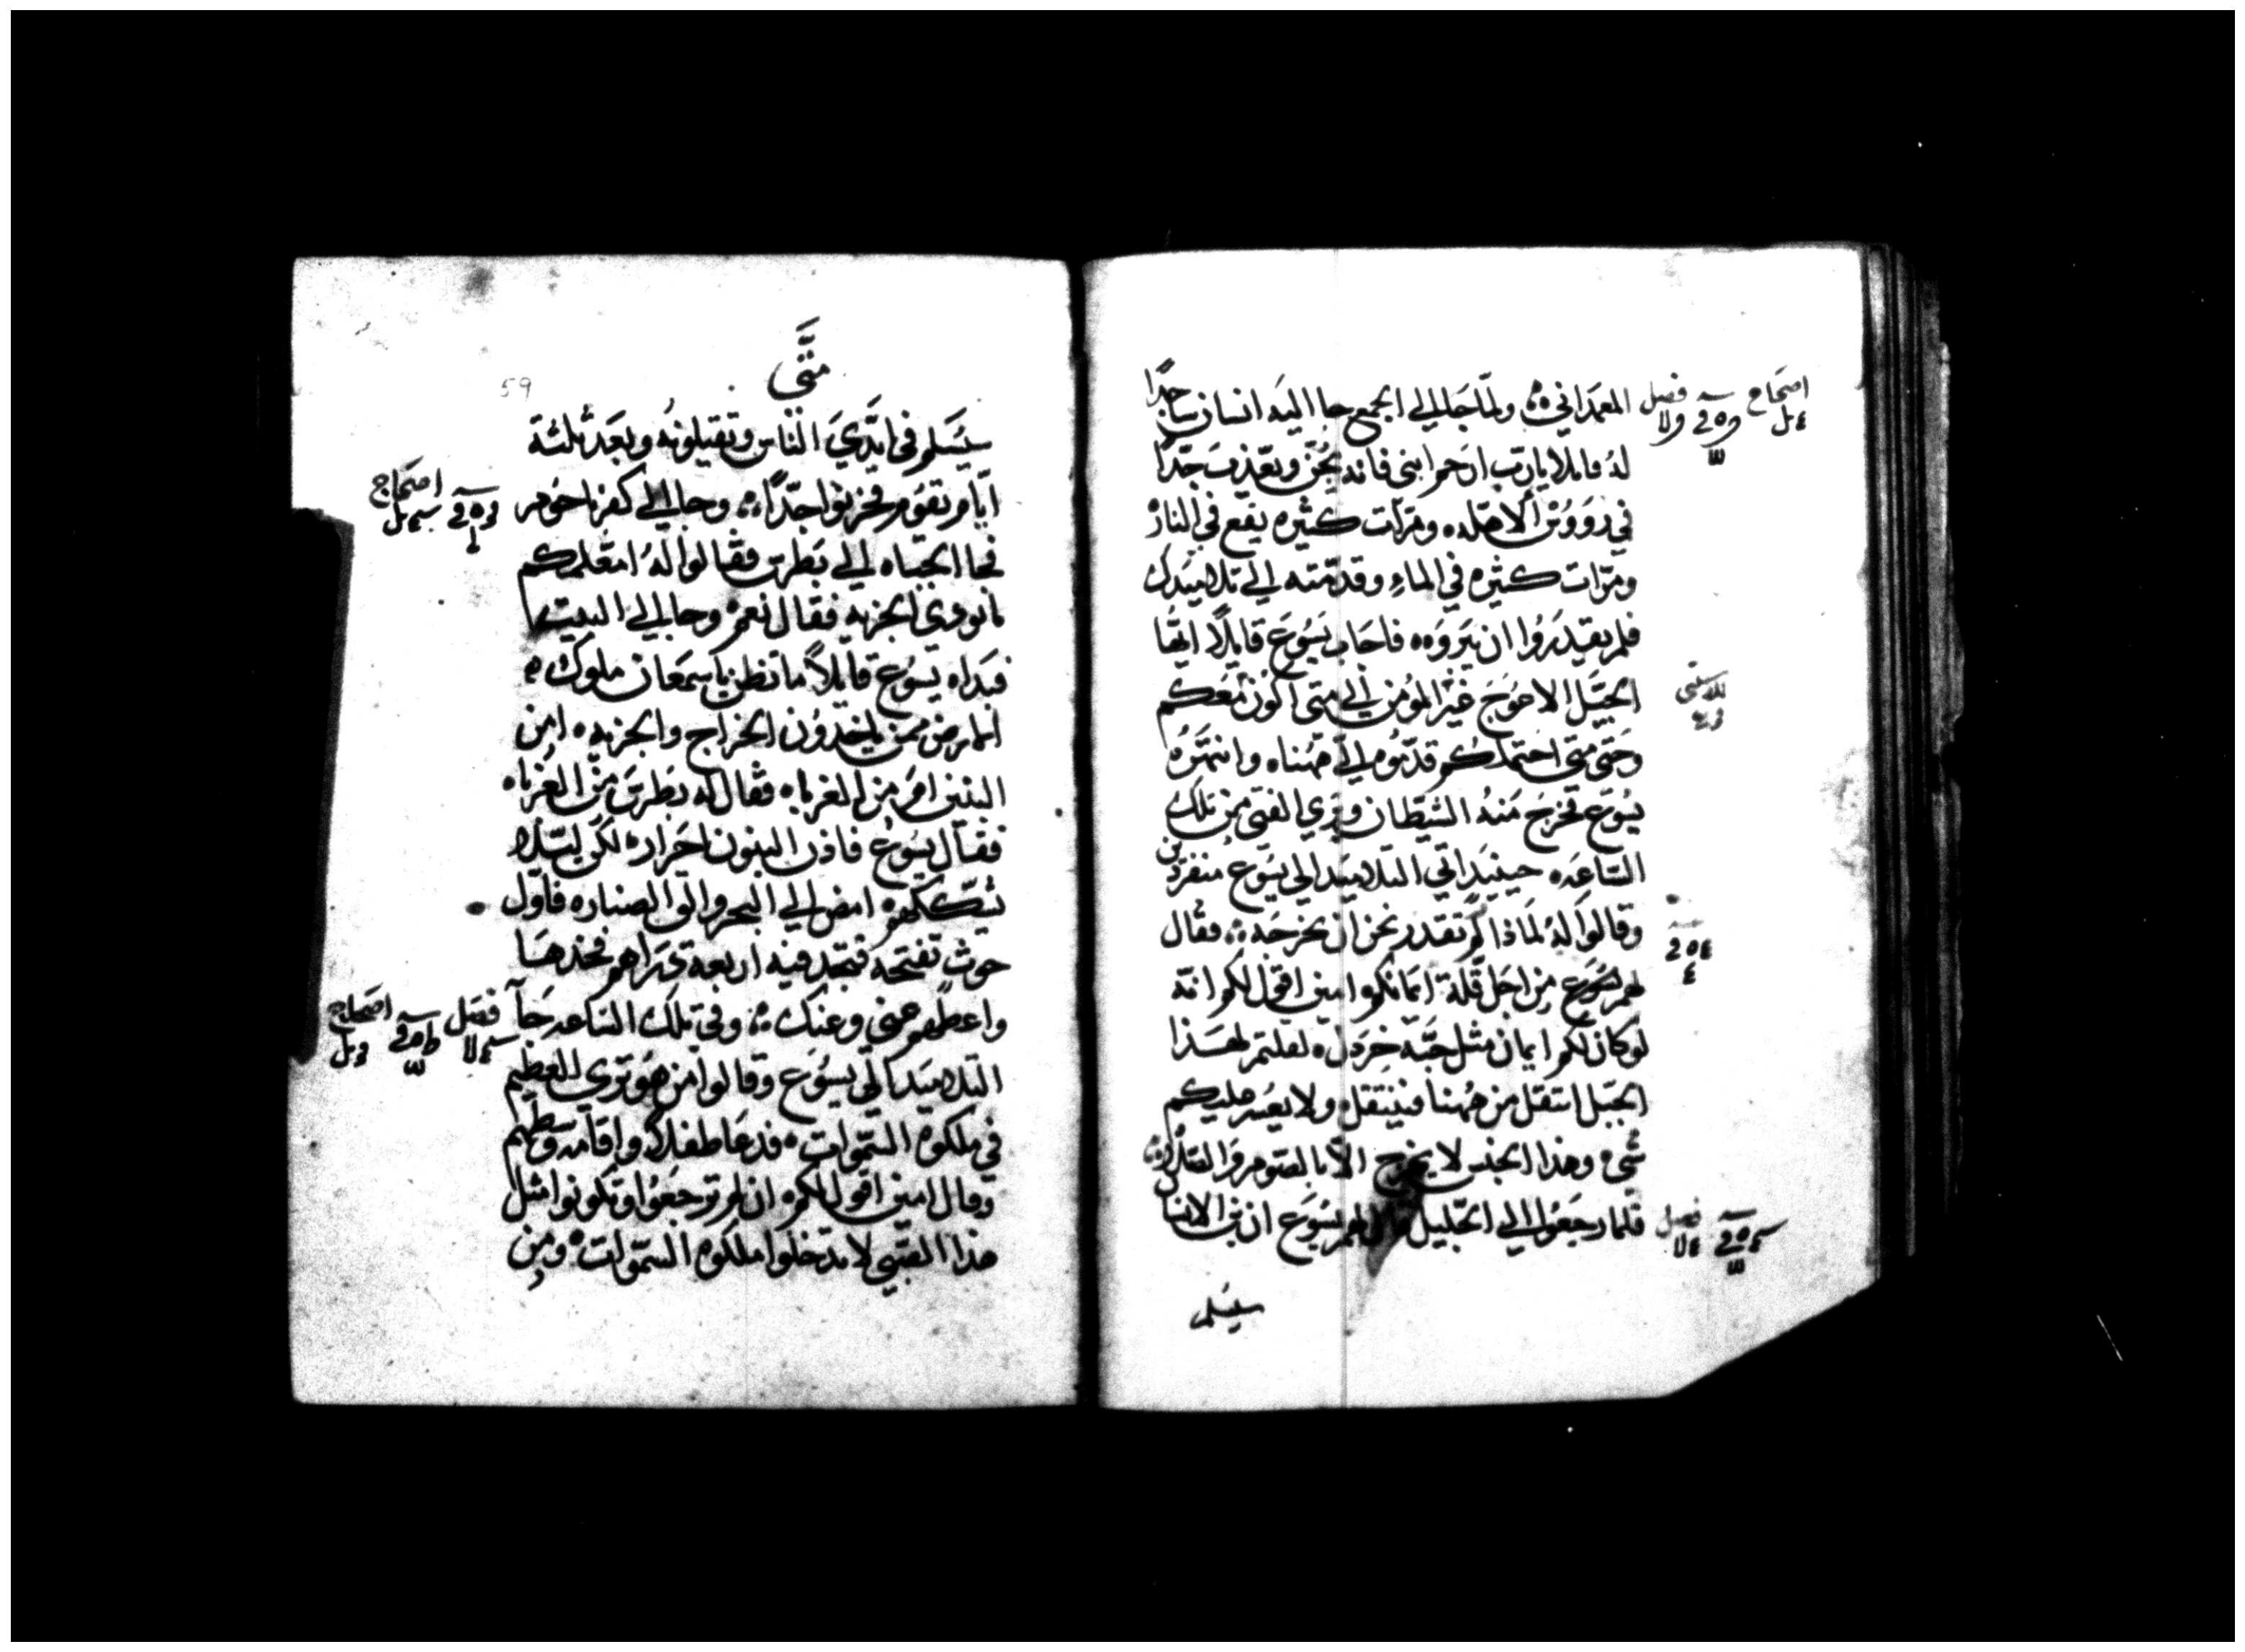 المعمداني ولما جا الي الجمع جا اليه انسان ساجدًا
له قايلا يارب ارحم ابني فانه يجن ويعذب جدًا
في رووس الاهله ومرات كثيره يقع في النار
ومرات كثيره في الماء وقدمته الي تلاميدك
فلم يقدروا ان يبروه فاجاب يسوع قايلًا ايها
الجيل الاعوج غير المومن الي متي اكون معكم
وحتي متي احتملكم قدموه الي ههنا وانتهره
يسوع فخرج منه الشيطان وبري الفتي من تلك
الساعه حينيد اتي التلاميد الي يسوع منفردين
وقالوا له لماذا لم نقدر نحن ان نخرجه فقال
لهم يسوع من اجل قلة ايمانكم امين اقول لكم انه
لو كان لكم ايمان مثل حبة خردل لقلتم لهذا
الجبل انتقل من ههنا فينتقل ولا يعسر عليكم
شي وهذا الجنس لا يخرج الا بالصوم والصلاه
فلما رجعوا الي الجليل قال لهم يسوع ان بن الانسا
سيسلم
اصحاح
فصل
فصل
متي
59
سيسلم في ايدي الناس وتقتلونه وبعد ثلثة
ايام تقوم فحزنوا جدًا وجا الي كفرناحوم
فجا الجباه الي بطرس فقالوا له امعلمكم
ما يودي الجزيه فقال نعم وجا الي البيت
فبداه يسوع قايلًا ما تظن يا سمعان ملوك
الارض ممن ياخدون الخراج والجزيه امن
البنين ام من الغربا فقال له بطرس من الغربا
فقال يسوع فاذن البنون احرار لكن ليلا
نشككهم امض الي البحر والق الصناره فاول
حوت تفتحه فتجد فيه اربعة دراهم فخدها
واعطهم عني وعنك وفي تلك الساعه جا
التلاميد الي يسوع وقالوا من هو تري العظيم
في ملكوه السموات فدعا طفلا واقامه وسطهم
وقال امين اقول لكم ان لم ترجعوا وتكونوا مثل
هذا الصبي لا تدخلوا ملكوه السموات ومن
اصحاح
فصل
اصحاح